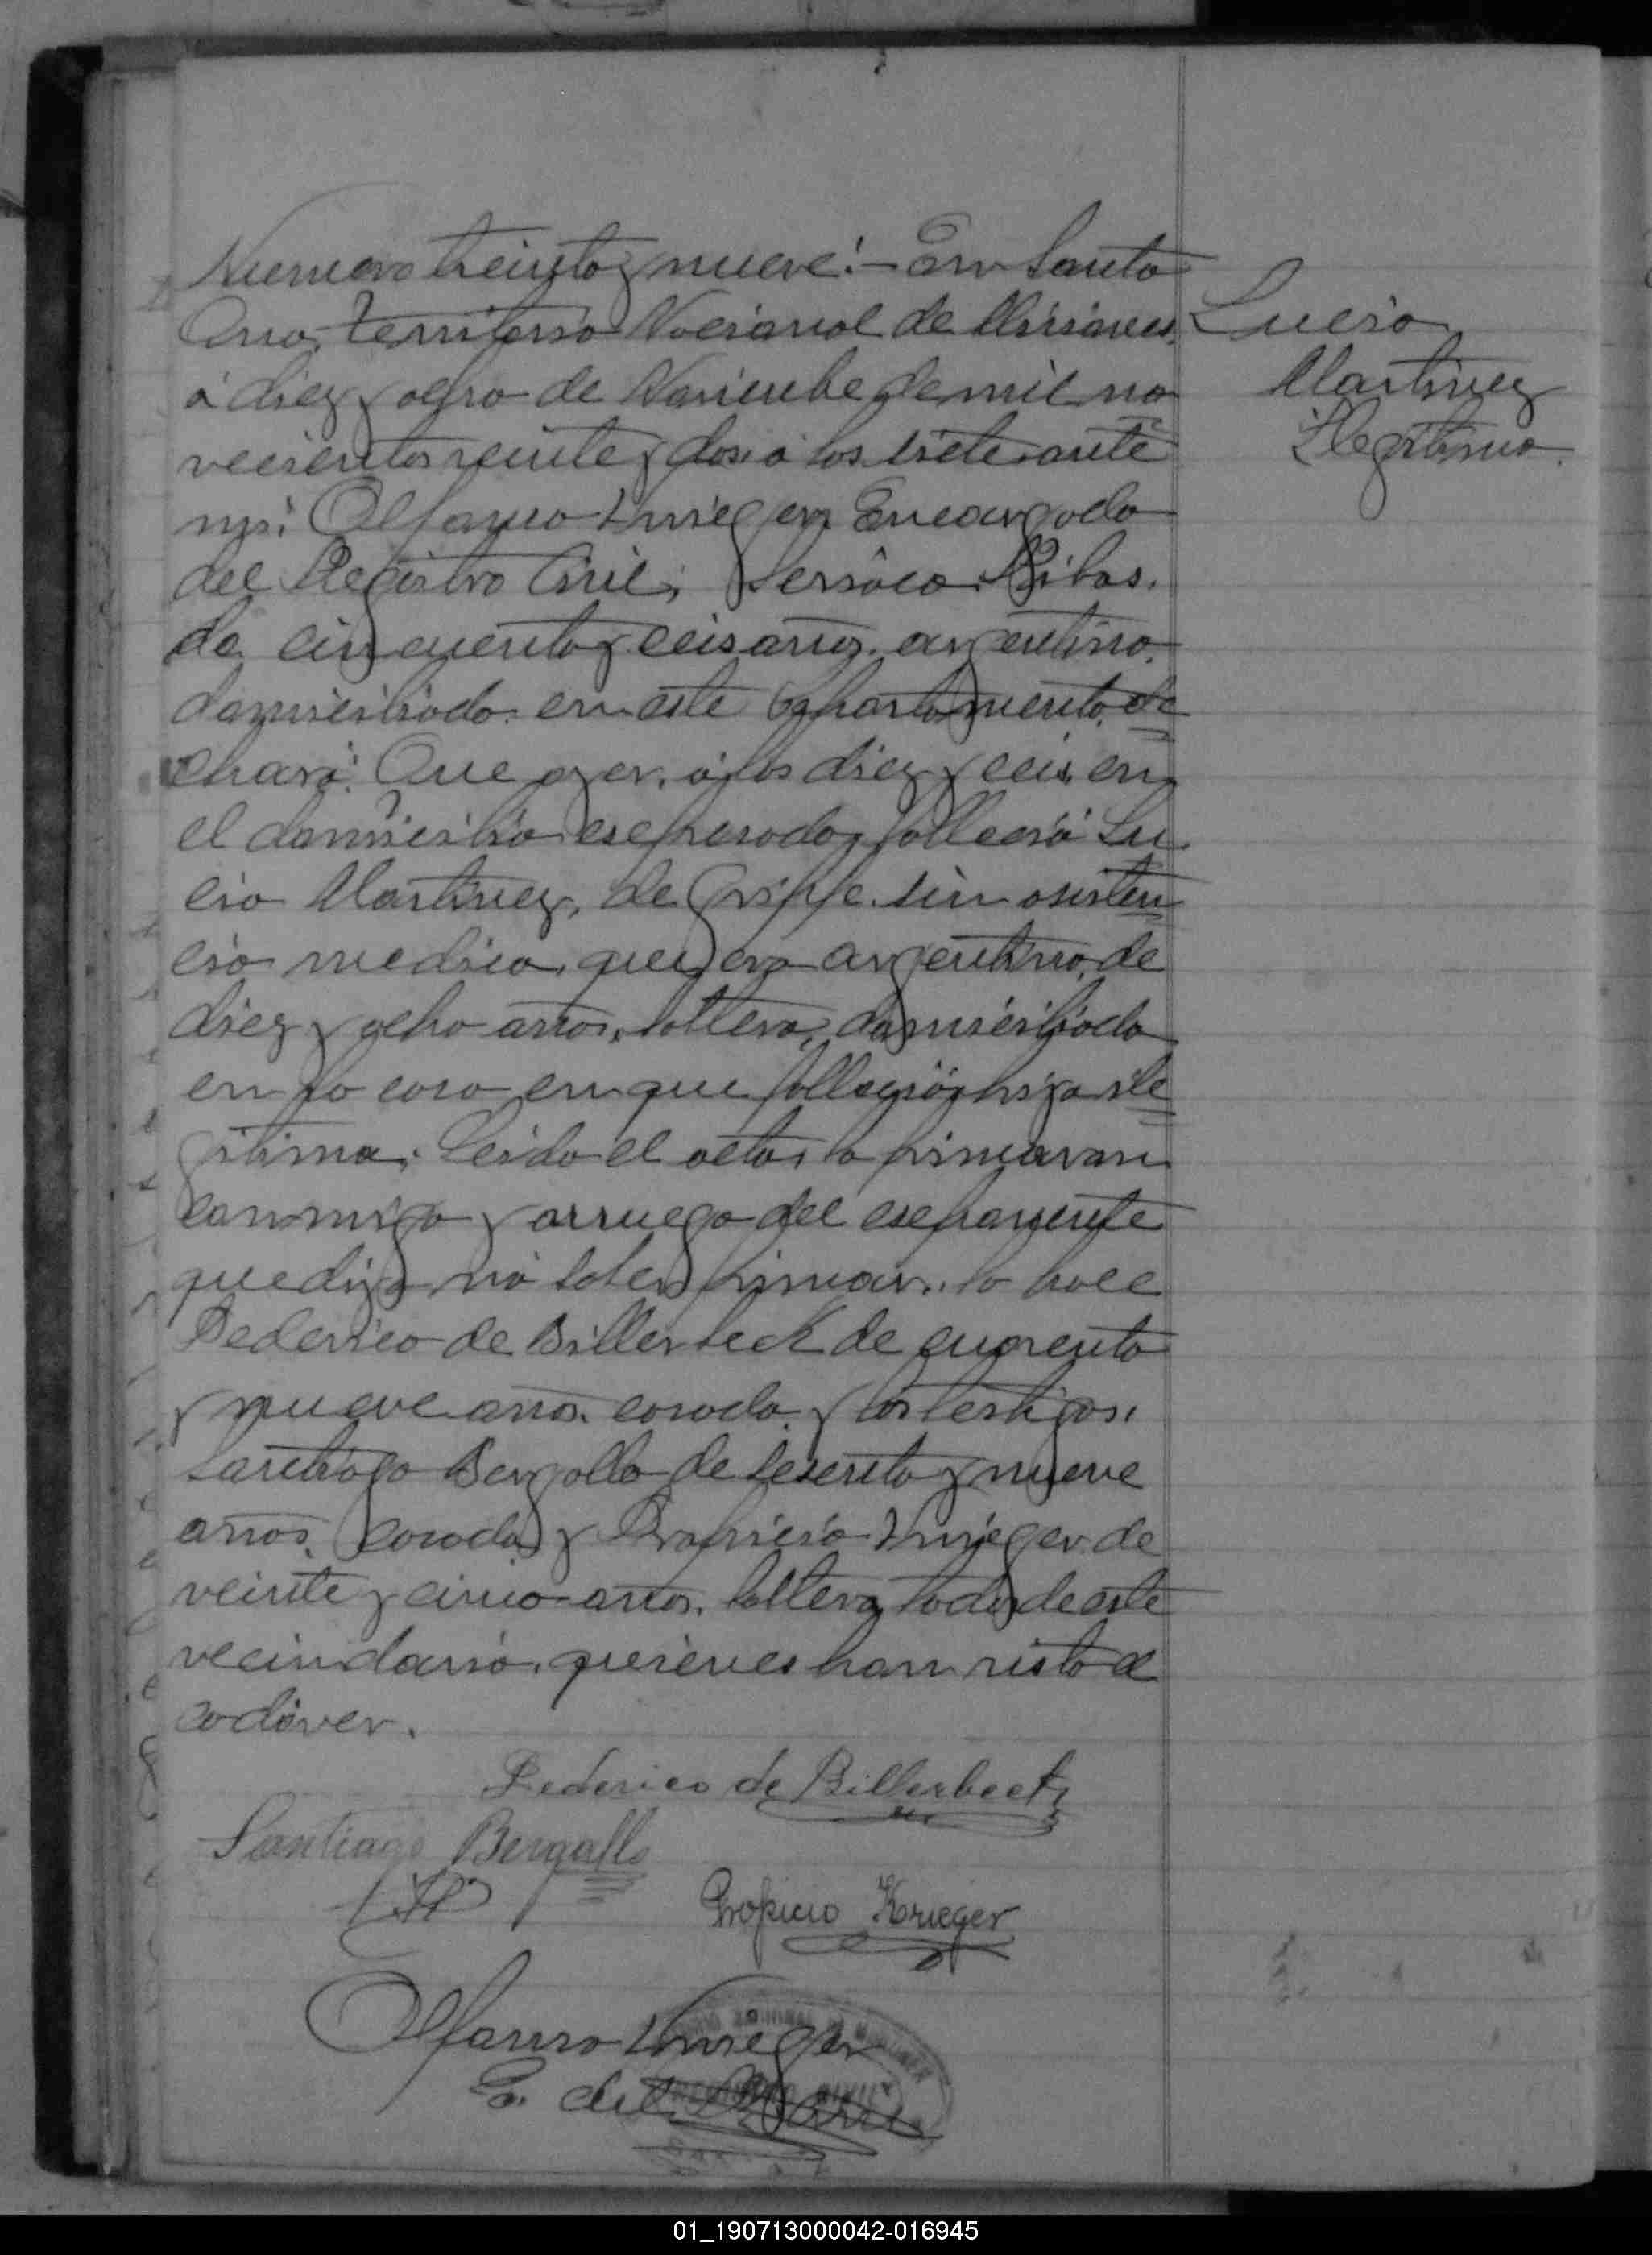 Numero treinta y nueve:- En Santa
Ana, Territorio Nacional de Misiones,
á diez y ocho de Noviembre de mil no
vecientos veinte y dos á las siete ante
mi: Alfonso Krieger Encargado
del Registro Civil,           Ribas,
de cincuenta y ceis años, argentino,
domiciliado en este Departamento, de
claró: Que ayer, á las diez y ceis en
el domicilio espresado, falleció Lu
cio Martinez, de Grippe sin asisten
cia medica, que era argentino, de
diez y ocho años, soltero, domiciliado
en la casa en que falleció, hijo ile
gitimo. Leido el acta, la firmaron
conmigo y arruego del esponente
que dijo nó saber firmar, lo hace
Federico de Billerbeck de cuarenta
y nueve años, casado, y los testigos,
Santiago Bergallo de sesenta y nueve
años, casado, y Propicio Krieger de
veinte y cinco años, soltero, todos de este
vecindario, quienes han visto el
cadáver.
Federico de Billerbeck
Santiago Bergallo
Propicio Krieger
Alfonso Krieger
E. del
REGISTRO CIVIL
Lucio
Martinez
Ilegitimo.
01_190713000042-016945